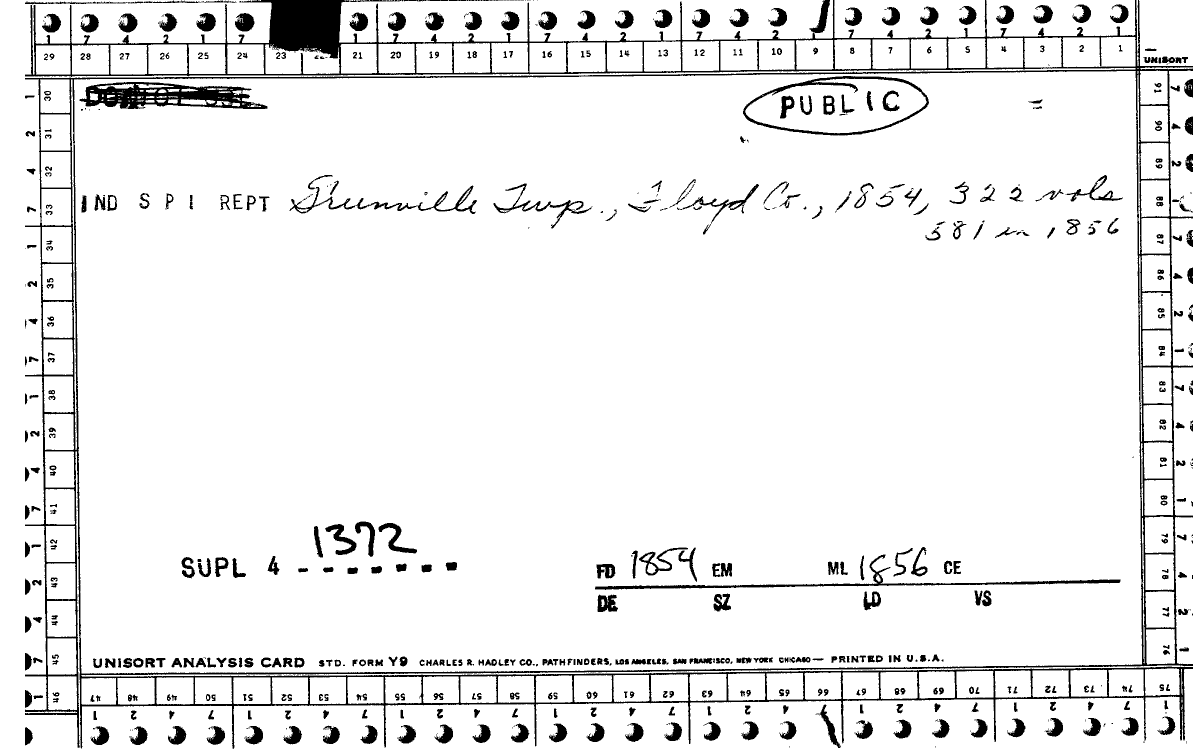 1 7 4 2 1 7 1 7 4 2 1 7 4 2 1 7 4 2 1 7 4 2 1
29 28 27 26 25 24 23 22 21 20 19 18 17 16 15 14 13 12 11 10 9 8 7 6 5 4 3 2 1
UNISORT
PUBLIC =
IND S P I REPT Greenville Twp., Floyd Co., 1854, 322 vols
581 in 1856
1372
SUPL 4 - - - - - - -
FD 1854 EM ML 1856 CE
DE SZ LD VS
UNISORT ANALYSIS CARD STD. FORM Y9 CHARLES R. HADLEY CO., PATHFINDERS, LOS ANGELES, SAN FRANCISCO, NEW YORK CHICAGO — PRINTED IN U.S.A.
30 31 32 33 34 35 36 37 38 39 40 41 42 43 44 45 46
47 48 49 50 51 52 53 54 55 56 57 58 59 60 61 62 63 64 65 66 67 68 69 70 71 72 73 74 75
91 90 89 88 87 86 85 84 83 82 81 80 79 78 77 76